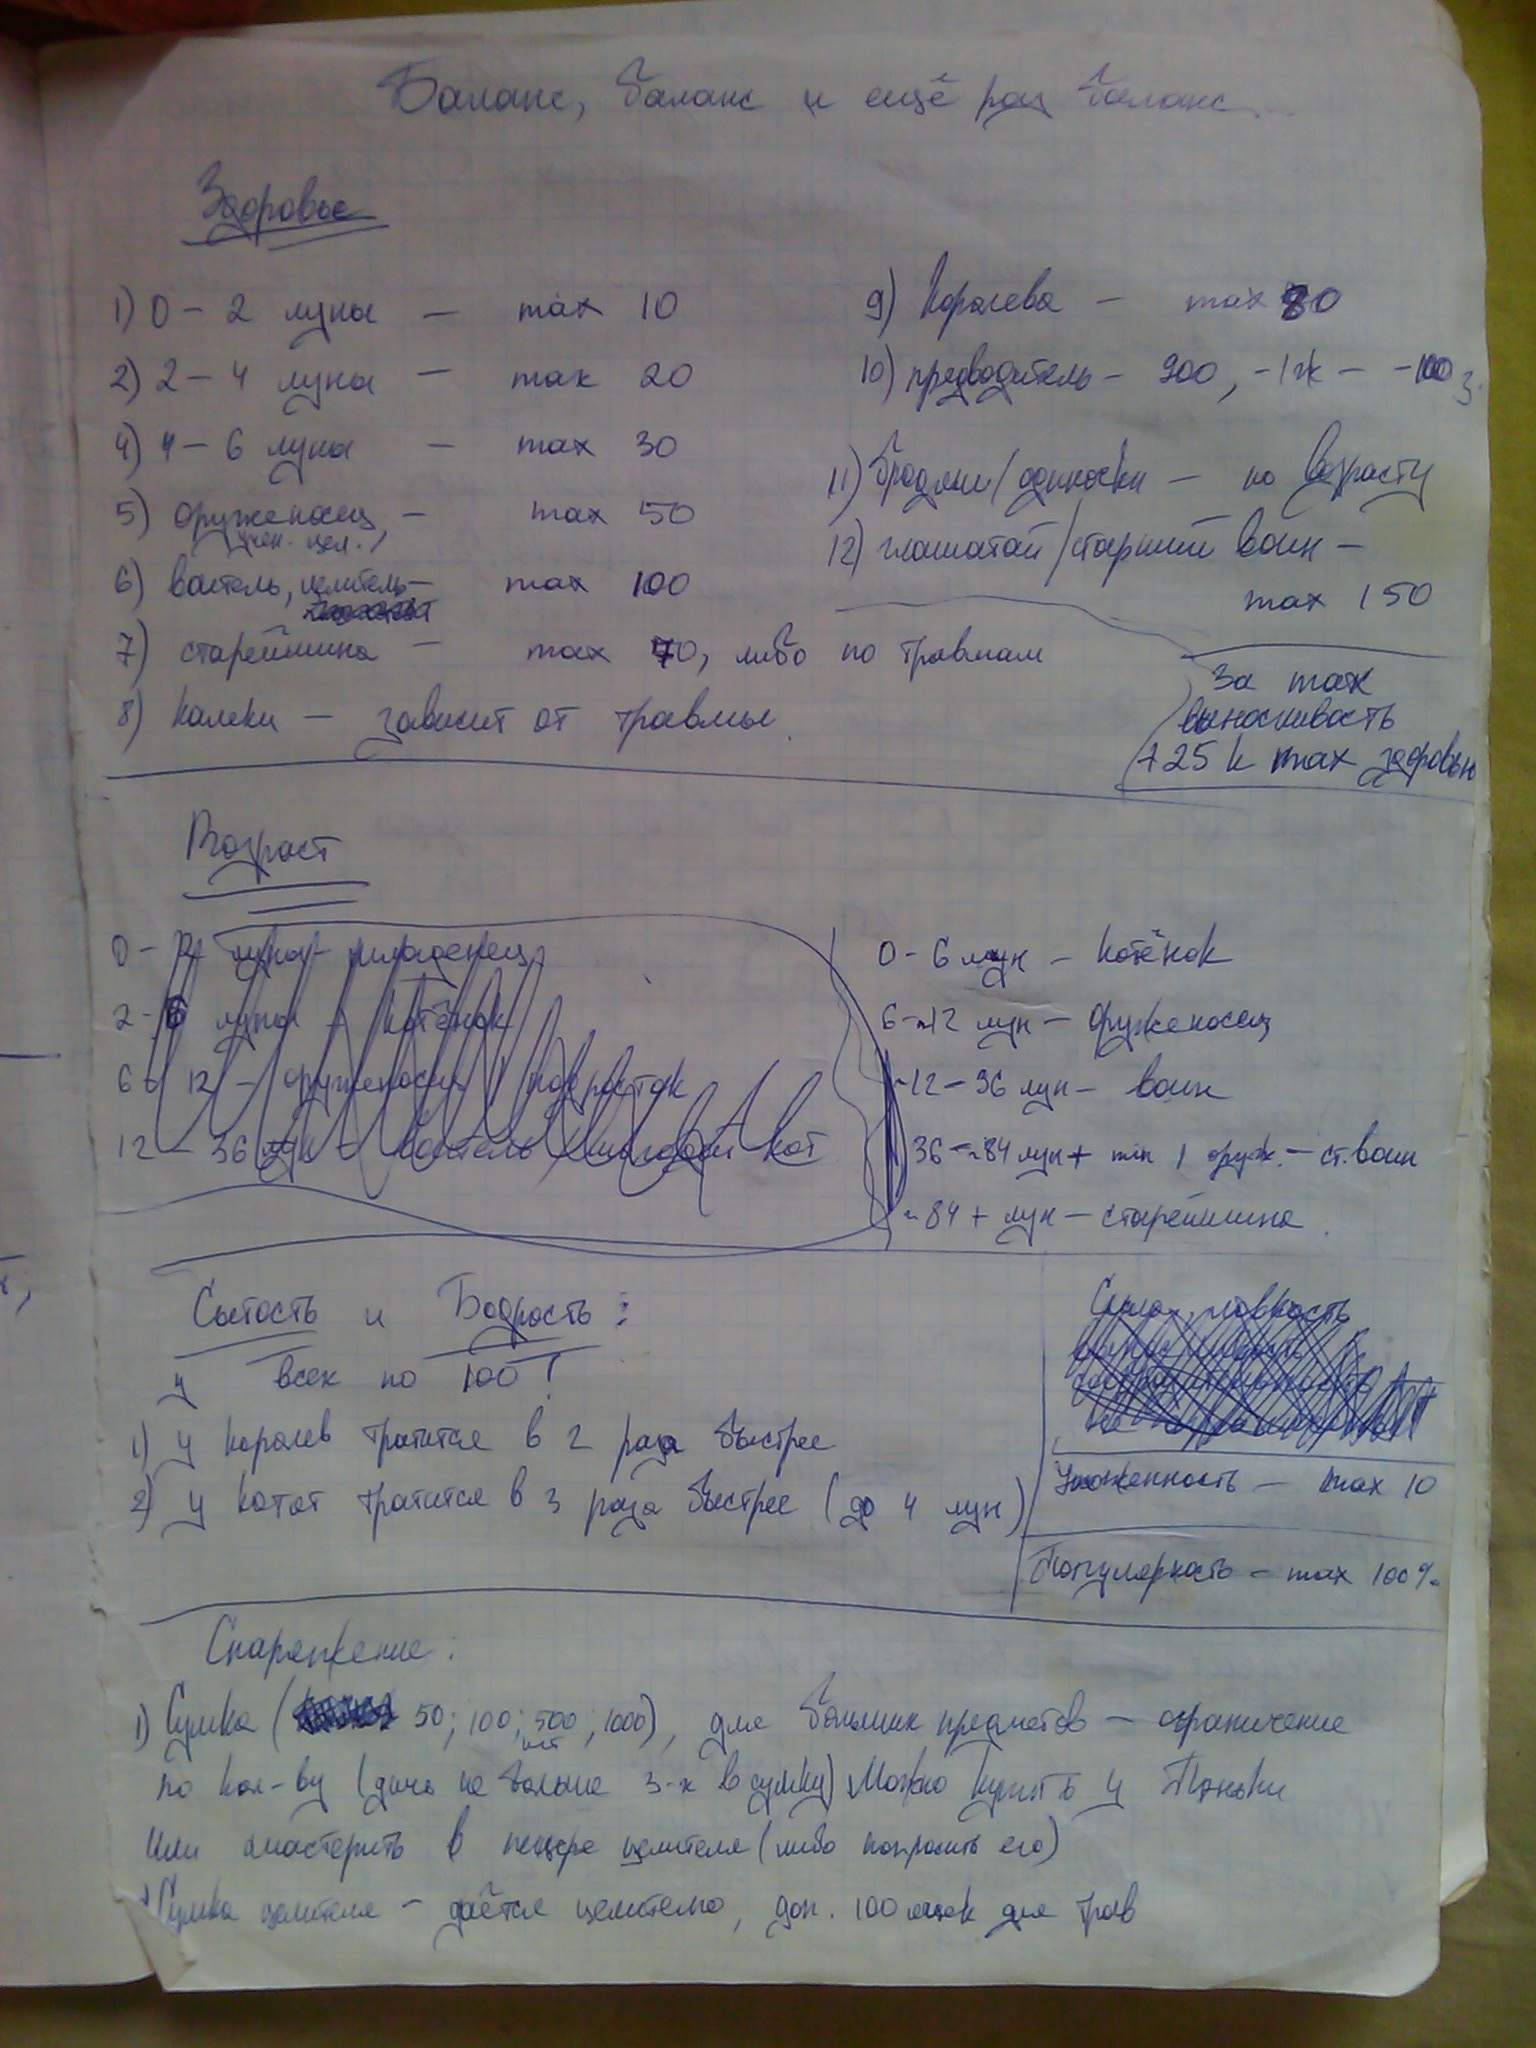 Баланс, баланс и ещё раз баланс.
Здоровье
1) 0 – 2 луны — max 10
2) 2 – 4 луны — max 20
4) 4 – 6 луны — max 30
5) оруженосец, —  max 50
учен. цел.
6) воитель, целитель — max 100
7) старейшина — max 70, либо по травмам
8) калеки — зависит от травмы.
9) Королева — max 80
10) предводитель — 900, -1ж — -100 з.
11) бродяги/одиночки — по возрасту
12) глашатай/старший воин —
max 150
За max
выносливость
+25 к max здоровью
Возраст
0 - 2 луны - младенец
2 - 6 луны - котёнок
6 - 12 - оруженосец / подросток
12 - 36 лун - воитель / молодой кот
0 - 6 лун — котёнок
6 - ~12 лун — оруженосец
~12 – 36 лун — воин
36 - ~84 лун + min 1 оруж. — ст. воин
~84 + лун — старейшина.
Сытость и Бодрость:
у всех по 100!
1) у королев тратится в 2 раза быстрее
2) у котят тратится в 3 раза быстрее (до 4 лун)
Сила, ловкость
Ухоженность — max 10
Популярность — max 100%
Снаряжение:
1) Сумка ( 50; 100; 500; 1000), для больших предметов — ограничение
по кол-ву (дичь не больше 3-х в сумку) Можно купить у
или смастерить в пещере целителя (либо попросить его)
Сумка целителя — даётся целителю, доп. 100 ячеек для трав